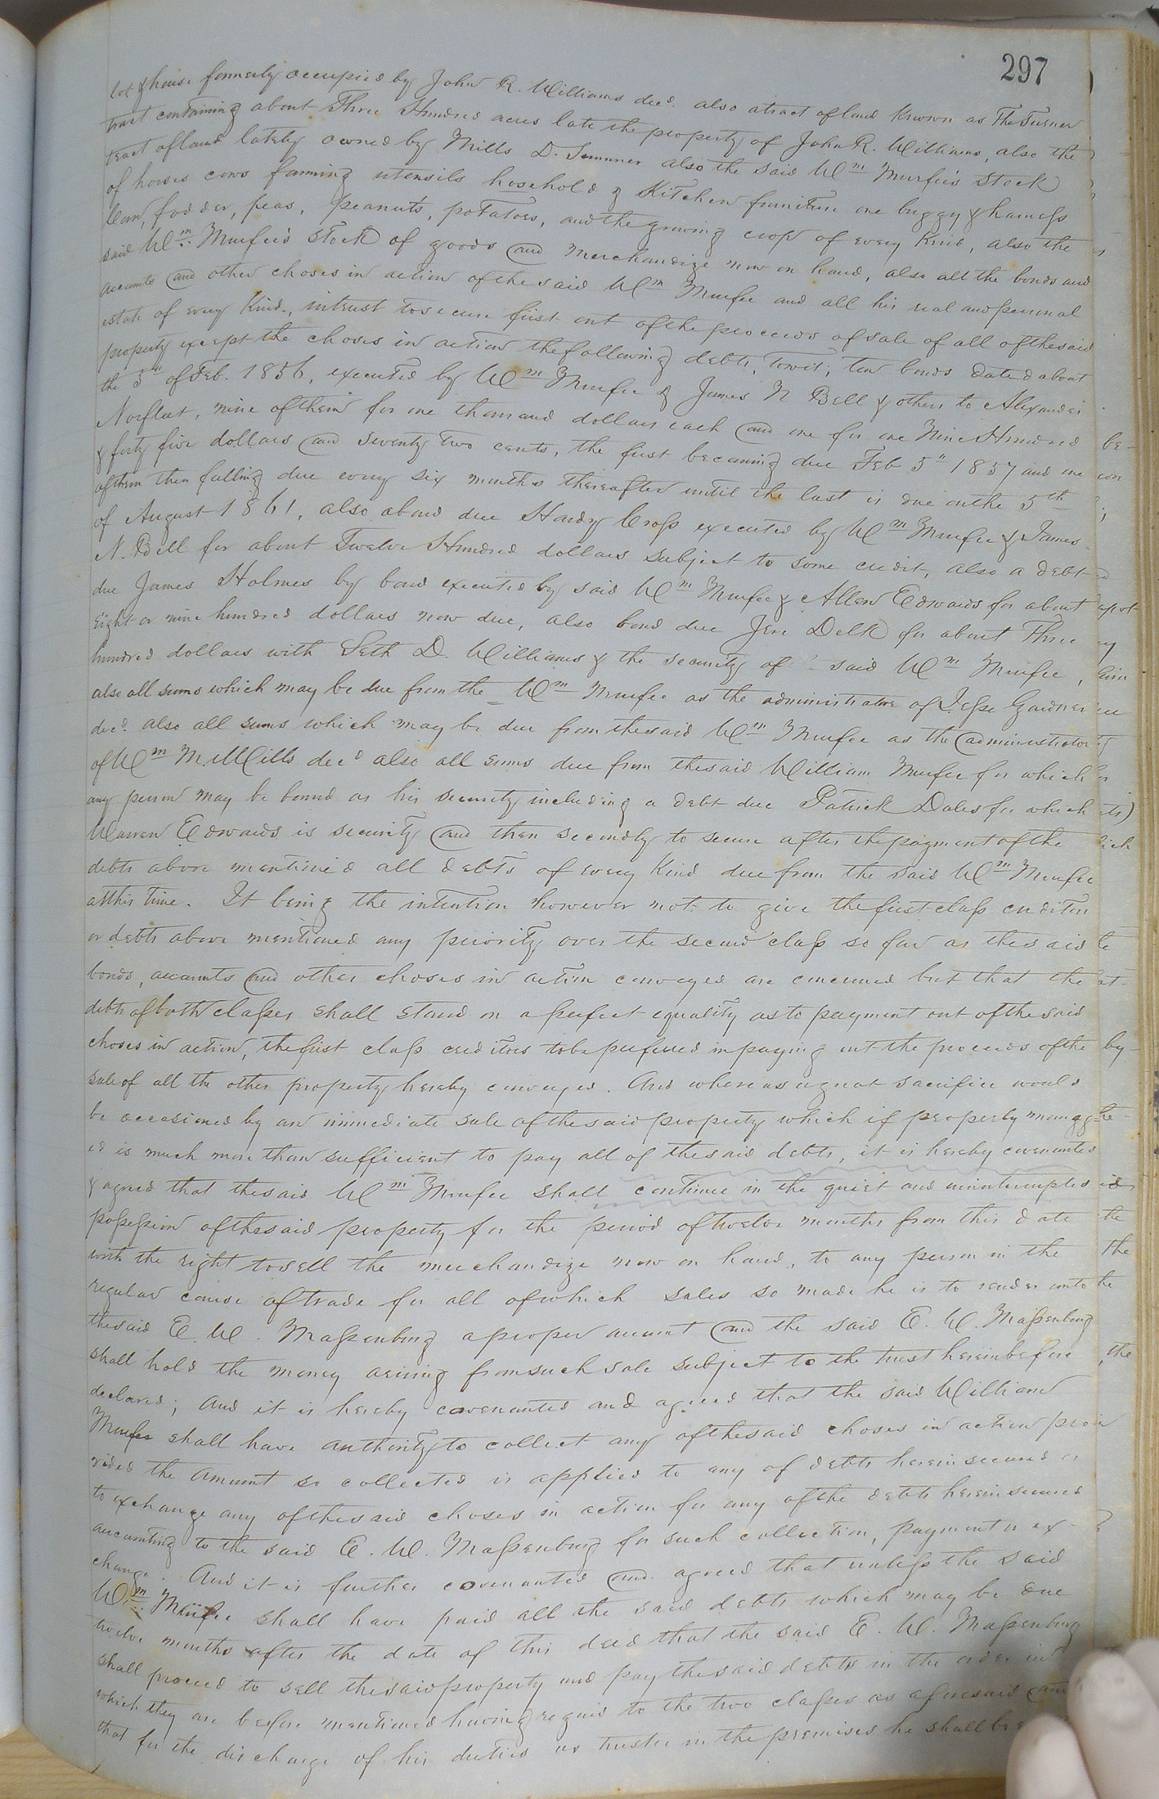 297
lot & house formerly occupied by John R. Williams decd. also a tract of land known as The Turner
tract containing about Three Hundred acres late the property of John R. Williams, also the
tract of land lately owned by Mills D. Sumner also the said Wm Murfee's Stock
of horses cows farming utensils hosehold & Kitchen furniture one buggy & harness
corn, fodder, peas, peanuts, potatoes, and the growing crop of every kind, also the
said Wm Murfee's stock of goods and merchandize now on hand, also all the bonds and
accounts and other choses in action of the said Wm Murfee and all his real and personal
estate of every kind, in trust to secure first out of the proceeds of sale of all of the said
property except the choses in action the following debts, towit; ten bonds dated about
the 5th of Feb. 1856, executed by Wm Murfee & James N Bell & others to Alexander
Norfleet, nine of them for one thousand dollars each and one for one Nine Hundred
& forty five dollars and seventy two cents, the first becoming due Feb 5th 1857 and one
of them then falling due every six months thereafter until the last is due on the 5th
of August 1861, also a bond due Hardy Cross executed by Wm Murfee & James
N. Bell for about Twelve Hundred dollars subject to some credit, also a debt
due James Holmes by bond executed by said Wm Murfee & Allen Edwards for about
Eight or nine hundred dollars now due, also bond due Jere Delk for about Three
hundred dollars with Seth D. Williams & the security of said Wm Murfee,
also all sums which may be due from the Wm Murfee as the administrator of Jesse Gardner
decd. also all sums which may be due from the said Wm Murfee as the administrator
of Wm M. Mills decd also all sums due from the said William Murfee for which
any person may be bound as his security including a debt due Patrick Dales for which
Warren Edwards is security and then secondly to secure after the payment of the
debts above mentioned all debts of every kind due from the said Wm Murfee
at this time. It being the intention however not to give the first class creditors
or debts above mentioned any priority over the second class so far as the said
bonds, accounts and other choses in action conveyed are concerned but that the
debts of both classes shall stand on a perfect equality as to payment out of the said
choses in action, the first class creditors to be preferred in paying out the proceeds of the
sale of all the other property hereby conveyed. And whereas a great sacrifice would
be occasioned by an immediate sale of the said property which if properly managed
is much more than sufficient to pay all of the said debts, it is hereby covenanted
& agreed that the said Wm Murfee shall continue in the quiet and uninterrupted
possession of the said property for the period of twelve months from this date
with the right to sell the merchandize now on hand, to any person in the
regular course of trade for all of which sales so made he is to render unto
the said E. W. Massenburg a proper account and the said E. W. Massenburg
shall hold the money arising from such sale subject to the trust hereinbefore
declared; And it is hereby covenanted and agreed that the said William
Murfee shall have authority to collect any of the said choses in action pro
vided the amount so collected is applied to any of debts herein secured or
to exchange any of the said choses in action for any of the debts herein secured
accounting to the said E. W. Massenburg for such collection, payment or ex-
change. And it is further covenanted and agreed that unless the said
Wm Murfee shall have paid all the said debts which may be due
twelve months after the date of this deed that the said E. W. Massenburg
shall proceed to sell the said property and pay the said debts in the order in
which they are before mentioned having regard to the two classes as aforesaid and
that for the discharge of his duties as trustee in the premises he shall be